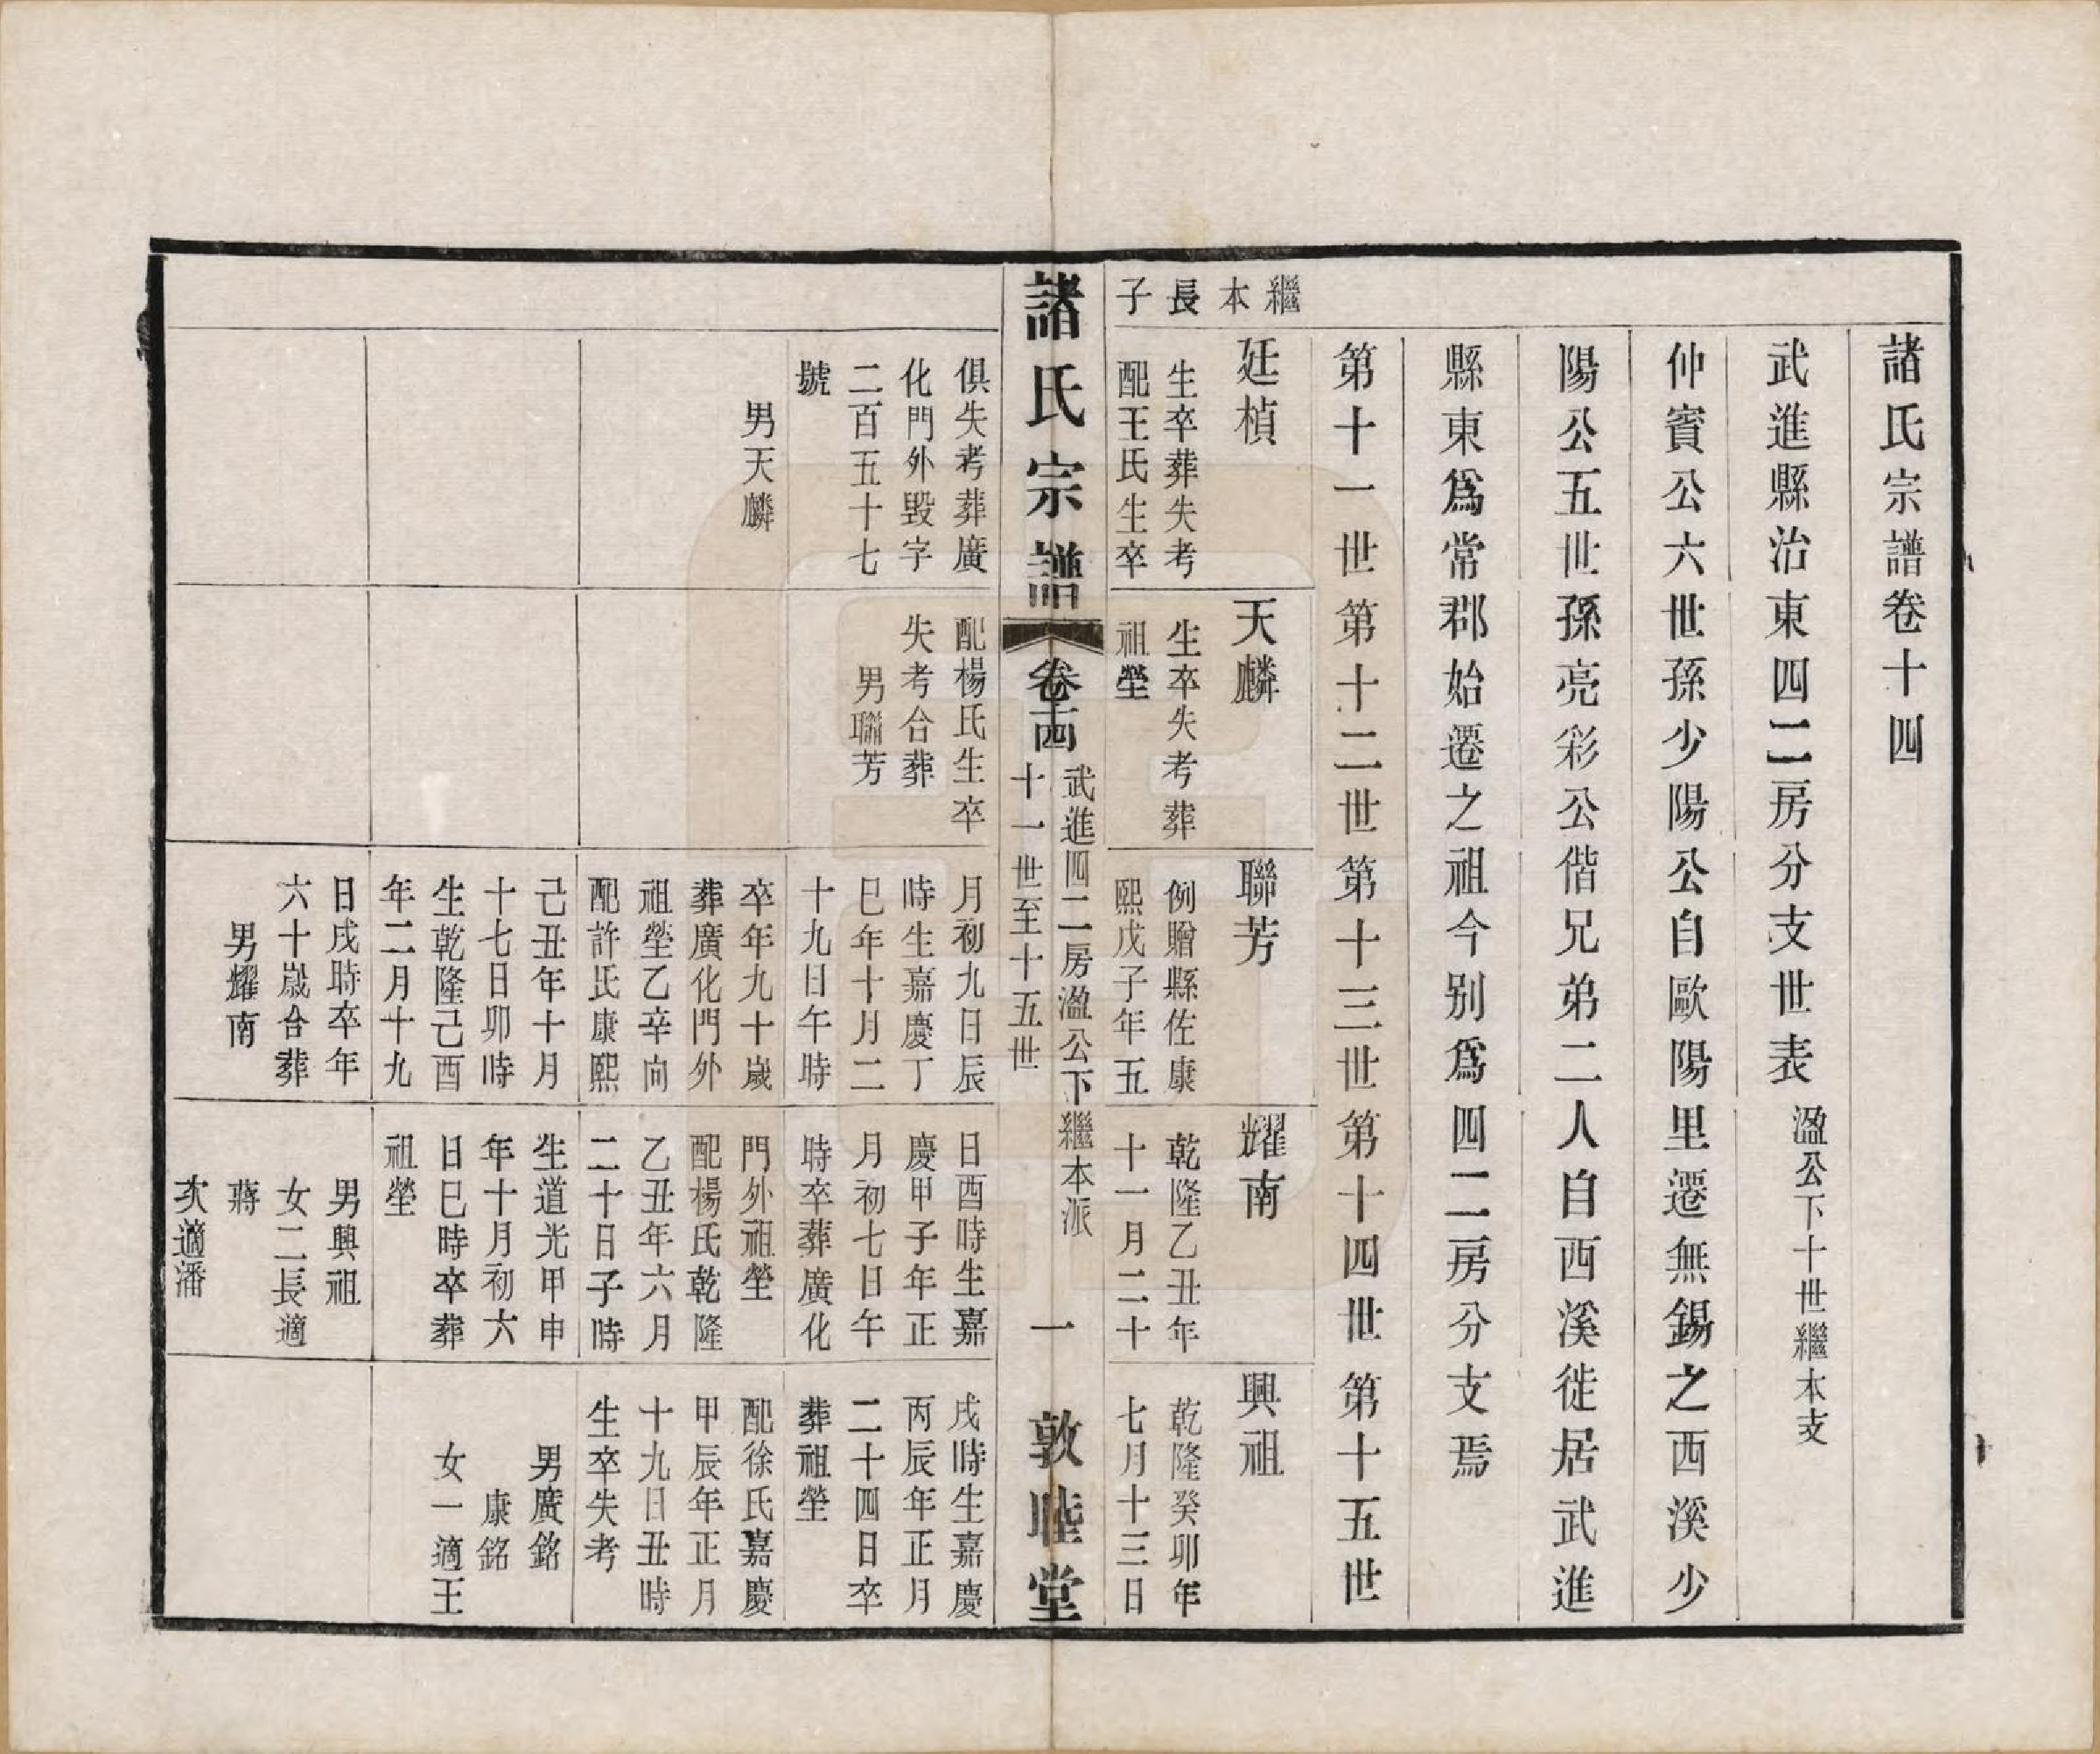 諸氏宗譜卷十四
武進縣治東四二房分支世表 溋公下十世繼本支
仲賓公六世孫少陽公自歐陽里遷無錫之西溪少
陽公五世孫亮彩公偕兄弟二人自西溪徙居武進
縣東爲常郡始遷之祖今別爲四二房分支焉
第十一世第十二世第十三世第十四世第十五世
繼本長子
廷楨
生卒葬失考
配王氏生卒
俱失考葬廣
化門外毀字
二百五十七
號
男天麟
天麟
生卒失考葬
祖塋
配楊氏生卒
失考合葬
男聯芳
聯芳
例贈縣佐康
熙戊子年五
月初九日辰
時生嘉慶丁
巳年十月二
十九日午時
卒年九十歲
葬廣化門外
祖塋乙辛向
配許氏康熙
己丑年十月
十七日卯時
生乾隆己酉
年二月十九
日戌時卒年
六十歲合葬
男耀南
耀南
乾隆乙丑年
十一月二十
日酉時生嘉
慶甲子年正
月初七日午
時卒葬廣化
門外祖塋
配楊氏乾隆
乙丑年六月
二十日子時
生道光甲申
年十月初六
日巳時卒葬
祖塋
男興祖
女二長適
蔣
次適潘
興祖
乾隆癸卯年
七月十三日
戌時生嘉慶
丙辰年正月
二十四日卒
葬祖塋
配徐氏嘉慶
甲辰年正月
十九日丑時
生卒失考
男廣銘
康銘
女一適王
諸氏宗譜 卷十四
武進四二房溋公下繼本派
十一世至十五世
一
敦睦堂